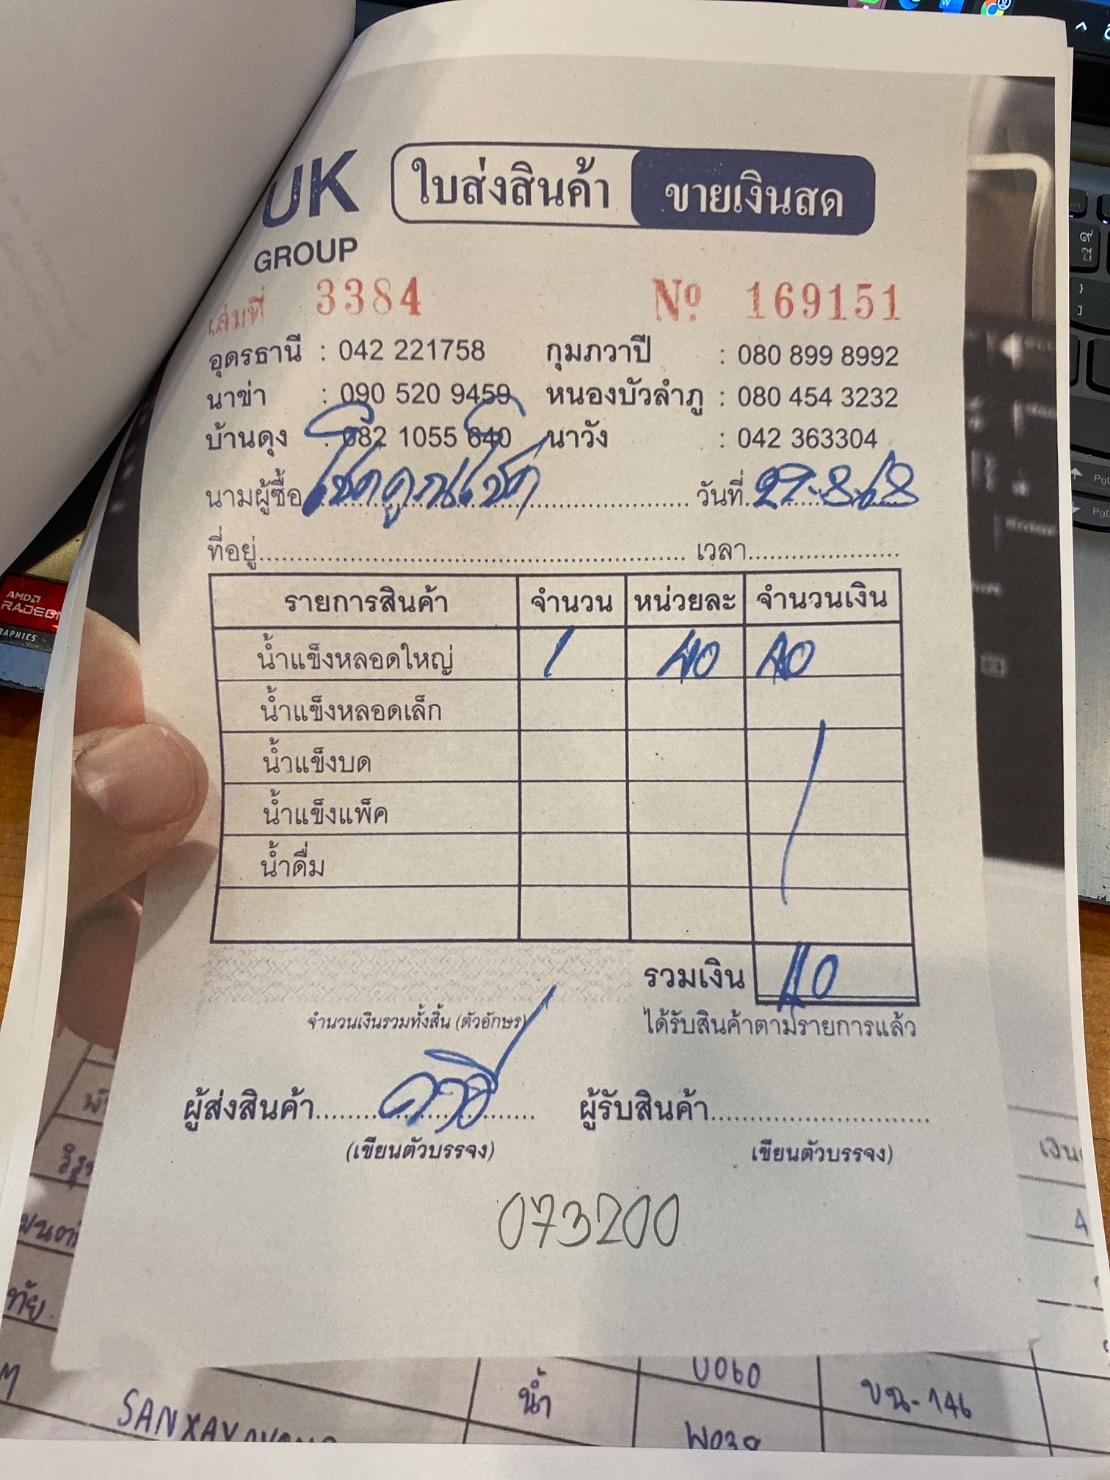 UK ใบส่งสินค้า ขายเงินสด
GROUP
เล่มที่ 3384 Nº 169151
อุดรธานี : 042 221758 กุมภวาปี : 080 899 8992
นาข่า : 090 520 9459 หนองบัวลำภู : 080 454 3232
บ้านดุง : 082 1055 640 นาวัง : 042 363304
นามผู้ซื้อ โชคคูณโชค วันที่ 27-8-68
ที่อยู่ เวลา
รายการสินค้า จำนวน หน่วยละ จำนวนเงิน
น้ำแข็งหลอดใหญ่ 1 40 40
น้ำแข็งหลอดเล็ก
น้ำแข็งบด
น้ำแข็งแพ็ค
น้ำดื่ม
รวมเงิน 40
จำนวนเงินรวมทั้งสิ้น (ตัวอักษร) ได้รับสินค้าตามรายการแล้ว
ผู้ส่งสินค้า ผู้รับสินค้า
(เขียนตัวบรรจง) เขียนตัวบรรจง)
073200
น้ำ U060 ขฉ-146
SANXAY
AMD
RADEON
GRAPHICS